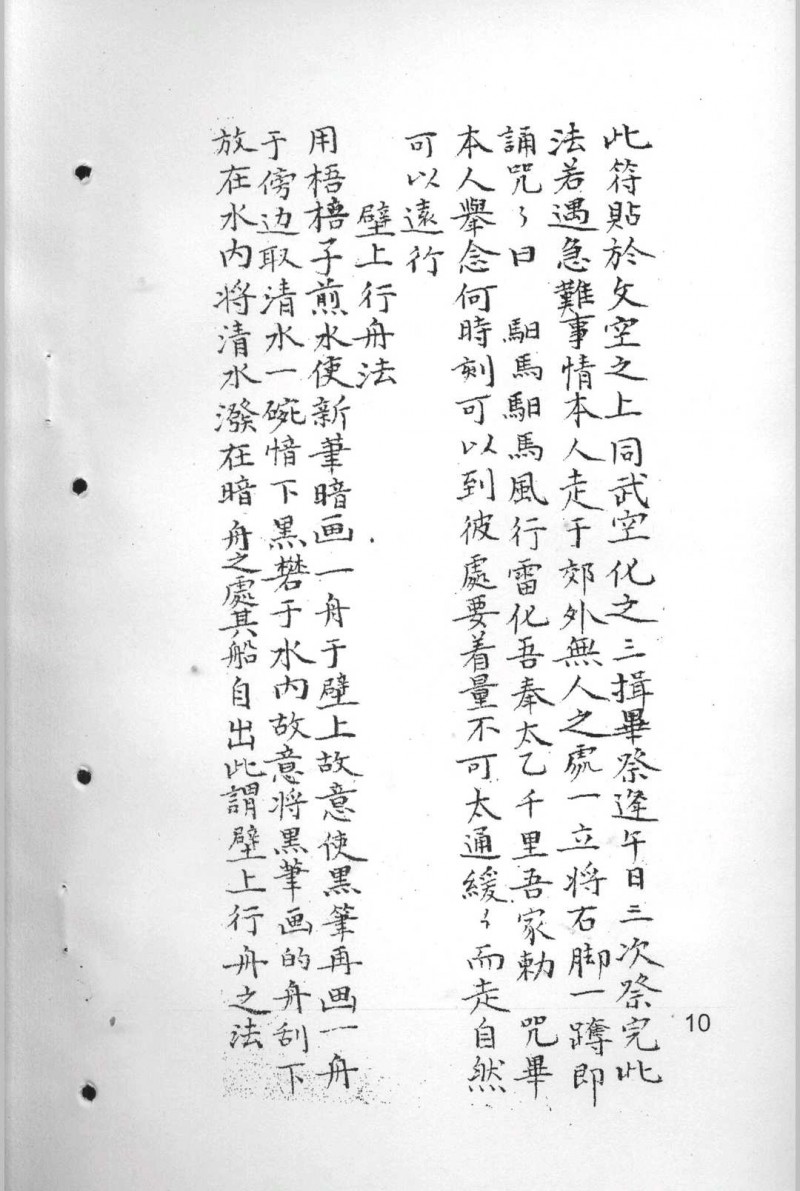 此符貼於文空之上同武空化之三揖畢祭逢午日三次祭完此
法若遇急難事情本人走于郊外無人之處一立将右脚一蹲即
誦咒々曰　馹馬馹馬風行雷化吾奉太乙千里吾家勅　咒畢
本人舉念何時刻可以到彼處要着量不可太通緩々而走自然
可以遠行
壁上行舟法
用梧桮子煎水使新筆暗画一舟于壁上故意使黒筆再画一舟
于傍边取清水一碗愔下黒礬于水内故意将黒筆画的舟刮下
放在水内将清水潑在暗舟之處其船自出此謂壁上行舟之法
10